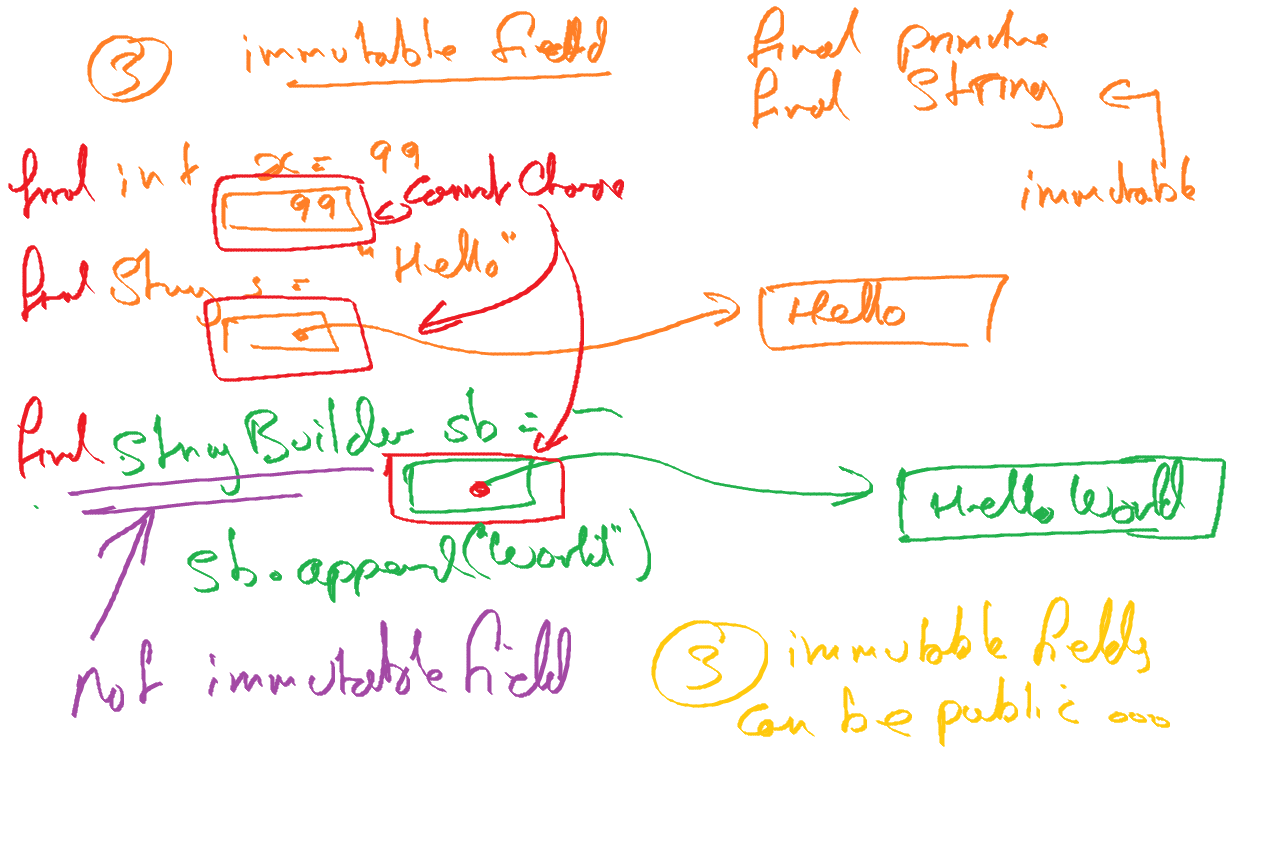 3 immutable field
final primitive
final String
immutable
final int x = 99
99
cannot change
final String s = "Hello"
Hello
final StringBuilder sb =
Hello World
sb.append("World")
not immutable field
3 immutable fields
can be public ...